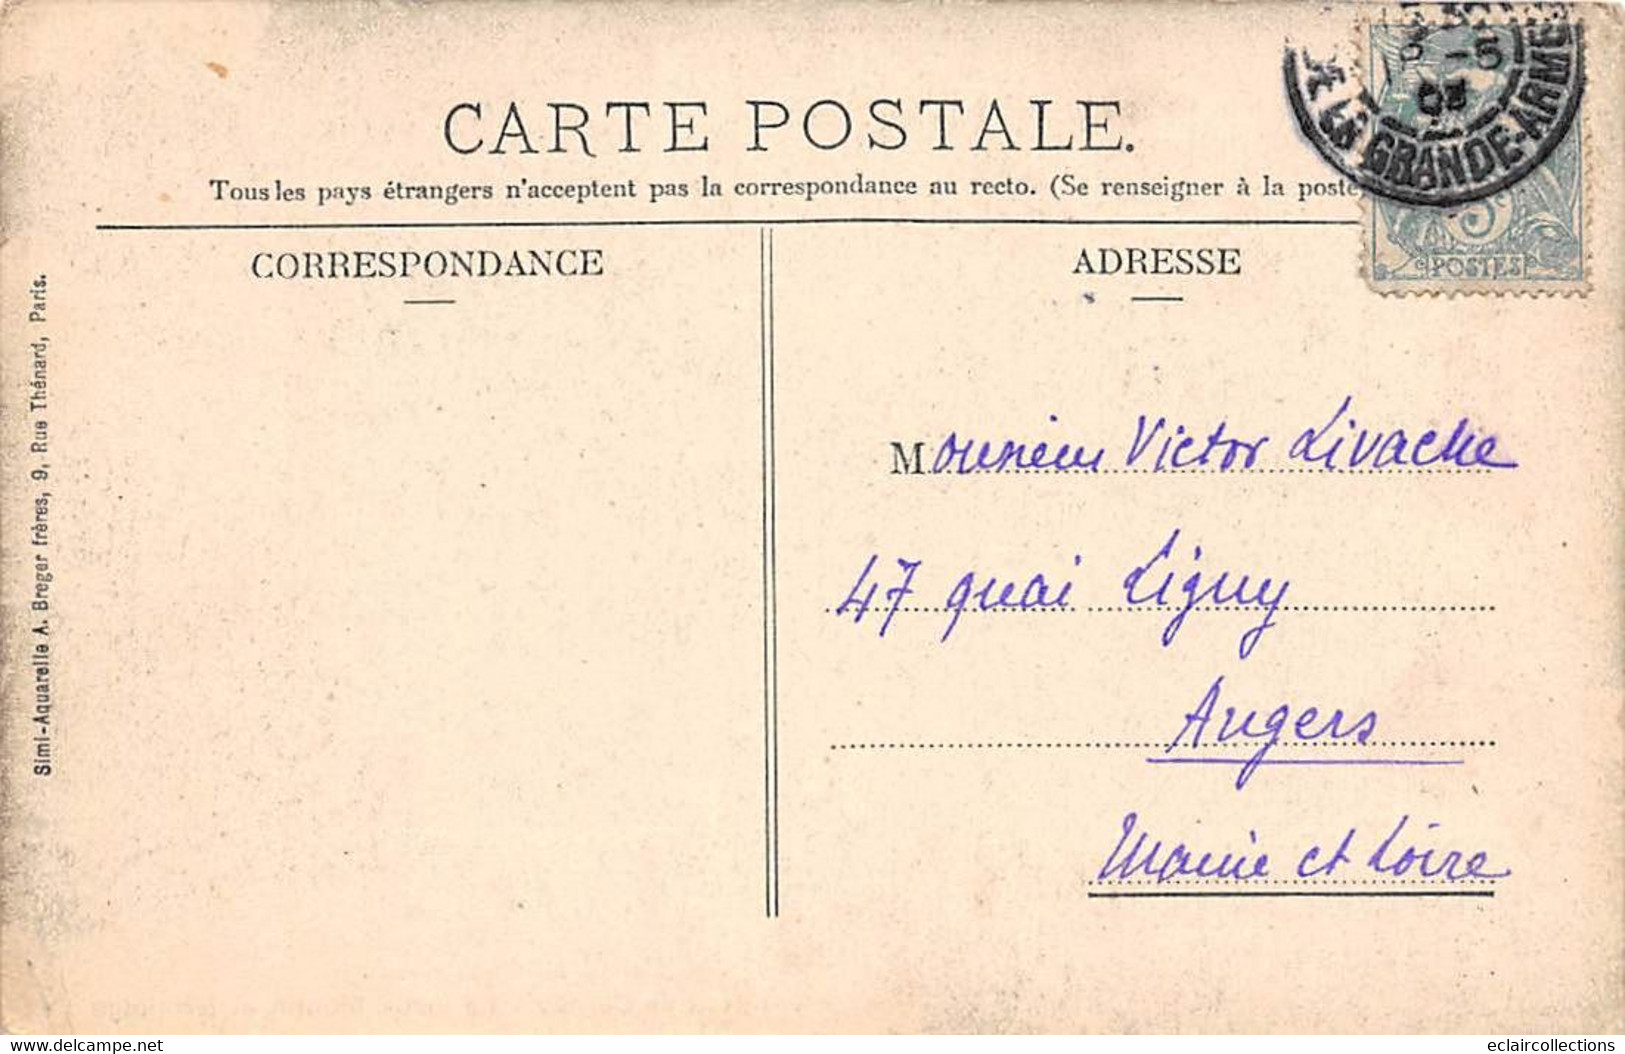 CARTE POSTALE.
Tous les pays étrangers n'acceptent pas la correspondance au recto. (Se renseigner à la poste
CORRESPONDANCE
ADRESSE
Monsieur Victor Livache
47 quai Ligny
Angers
Maine et Loire
Simi-Aquarelle A. Breger frères, 9, Rue Thénard, Paris.
LA GRANDE-ARMÉE
5c
POSTES
www.delcampe.net
eclaircollections